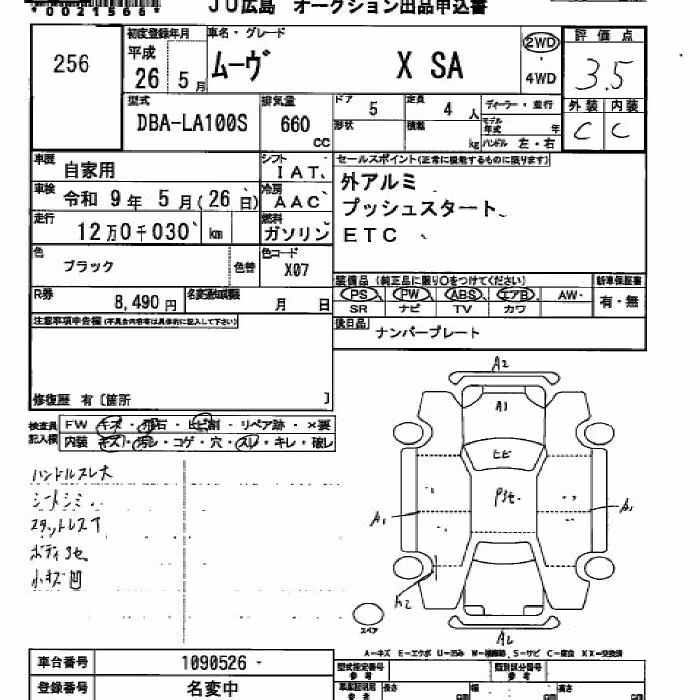 *0021566*
JU広島 オークション出品申込書
256
初度登録年月
平成
26 5月
車名・グレード
ムーヴ X SA
2WD
・
4WD
評価点
3.5
型式
DBA-LA100S
排気量
660
CC
ドア 5
定員 4人
ディーラー・並行
形状
積載 kg
モデル年式 年
ハンドル 左・右
外装 内装
C C
車歴 自家用
シフト IAT
セールスポイント(正常に機能するものに限ります)
車検 令和 9年 5月(26日)
冷房 AAC
外アルミ
プッシュスタート
ETC
走行 12万0千030 km
燃料 ガソリン
色 ブラック
色替
色コード X07
R券 8,490円
名変通知期限 月 日
装備品(純正品に限り○をつけてください)
新車保証書
PS PW ABS エアB AW
有・無
SR ナビ TV カワ
注意事項申告欄(不具合内容等は具体的に記入して下さい)
後日品 ナンバープレート
修復歴 有〔箇所 〕
検査員記入欄
FW キズ・飛石・ヒビ割・リペア跡・×要
内装 キズ・汚レ・コゲ・穴・スレ・キレ・破レ
ハンドルスレ大
シートシミ
スタットレスT
ボディ3セ
小キズ凹
A2
A1
ヒビ
A1
A1
A2
A2
スペア
A-キズ E-エクボ U-凹み W-補修跡 S-サビ C-腐食 XX-交換済
車台番号 1090526
型式指定番号
参考
類別区分番号
参考
登録番号 名変中
車庫証明用
参考
長さ cm
幅 cm
高さ cm